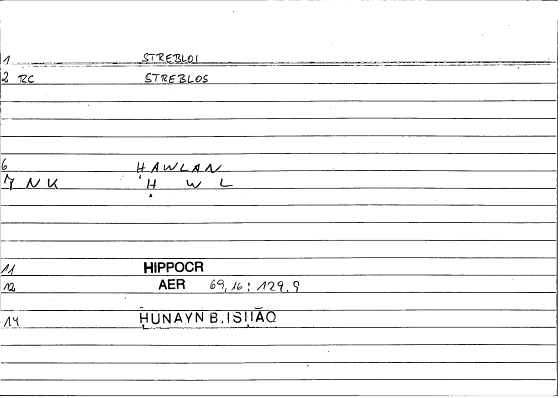 1 STREBLOI
2 RC STREBLOS
6 HAWLAN
7 NK Ḥ W L
11 HIPPOCR
12 AER 69,16 : 129.9
14 ḤUNAYN B.ISḤĀQ